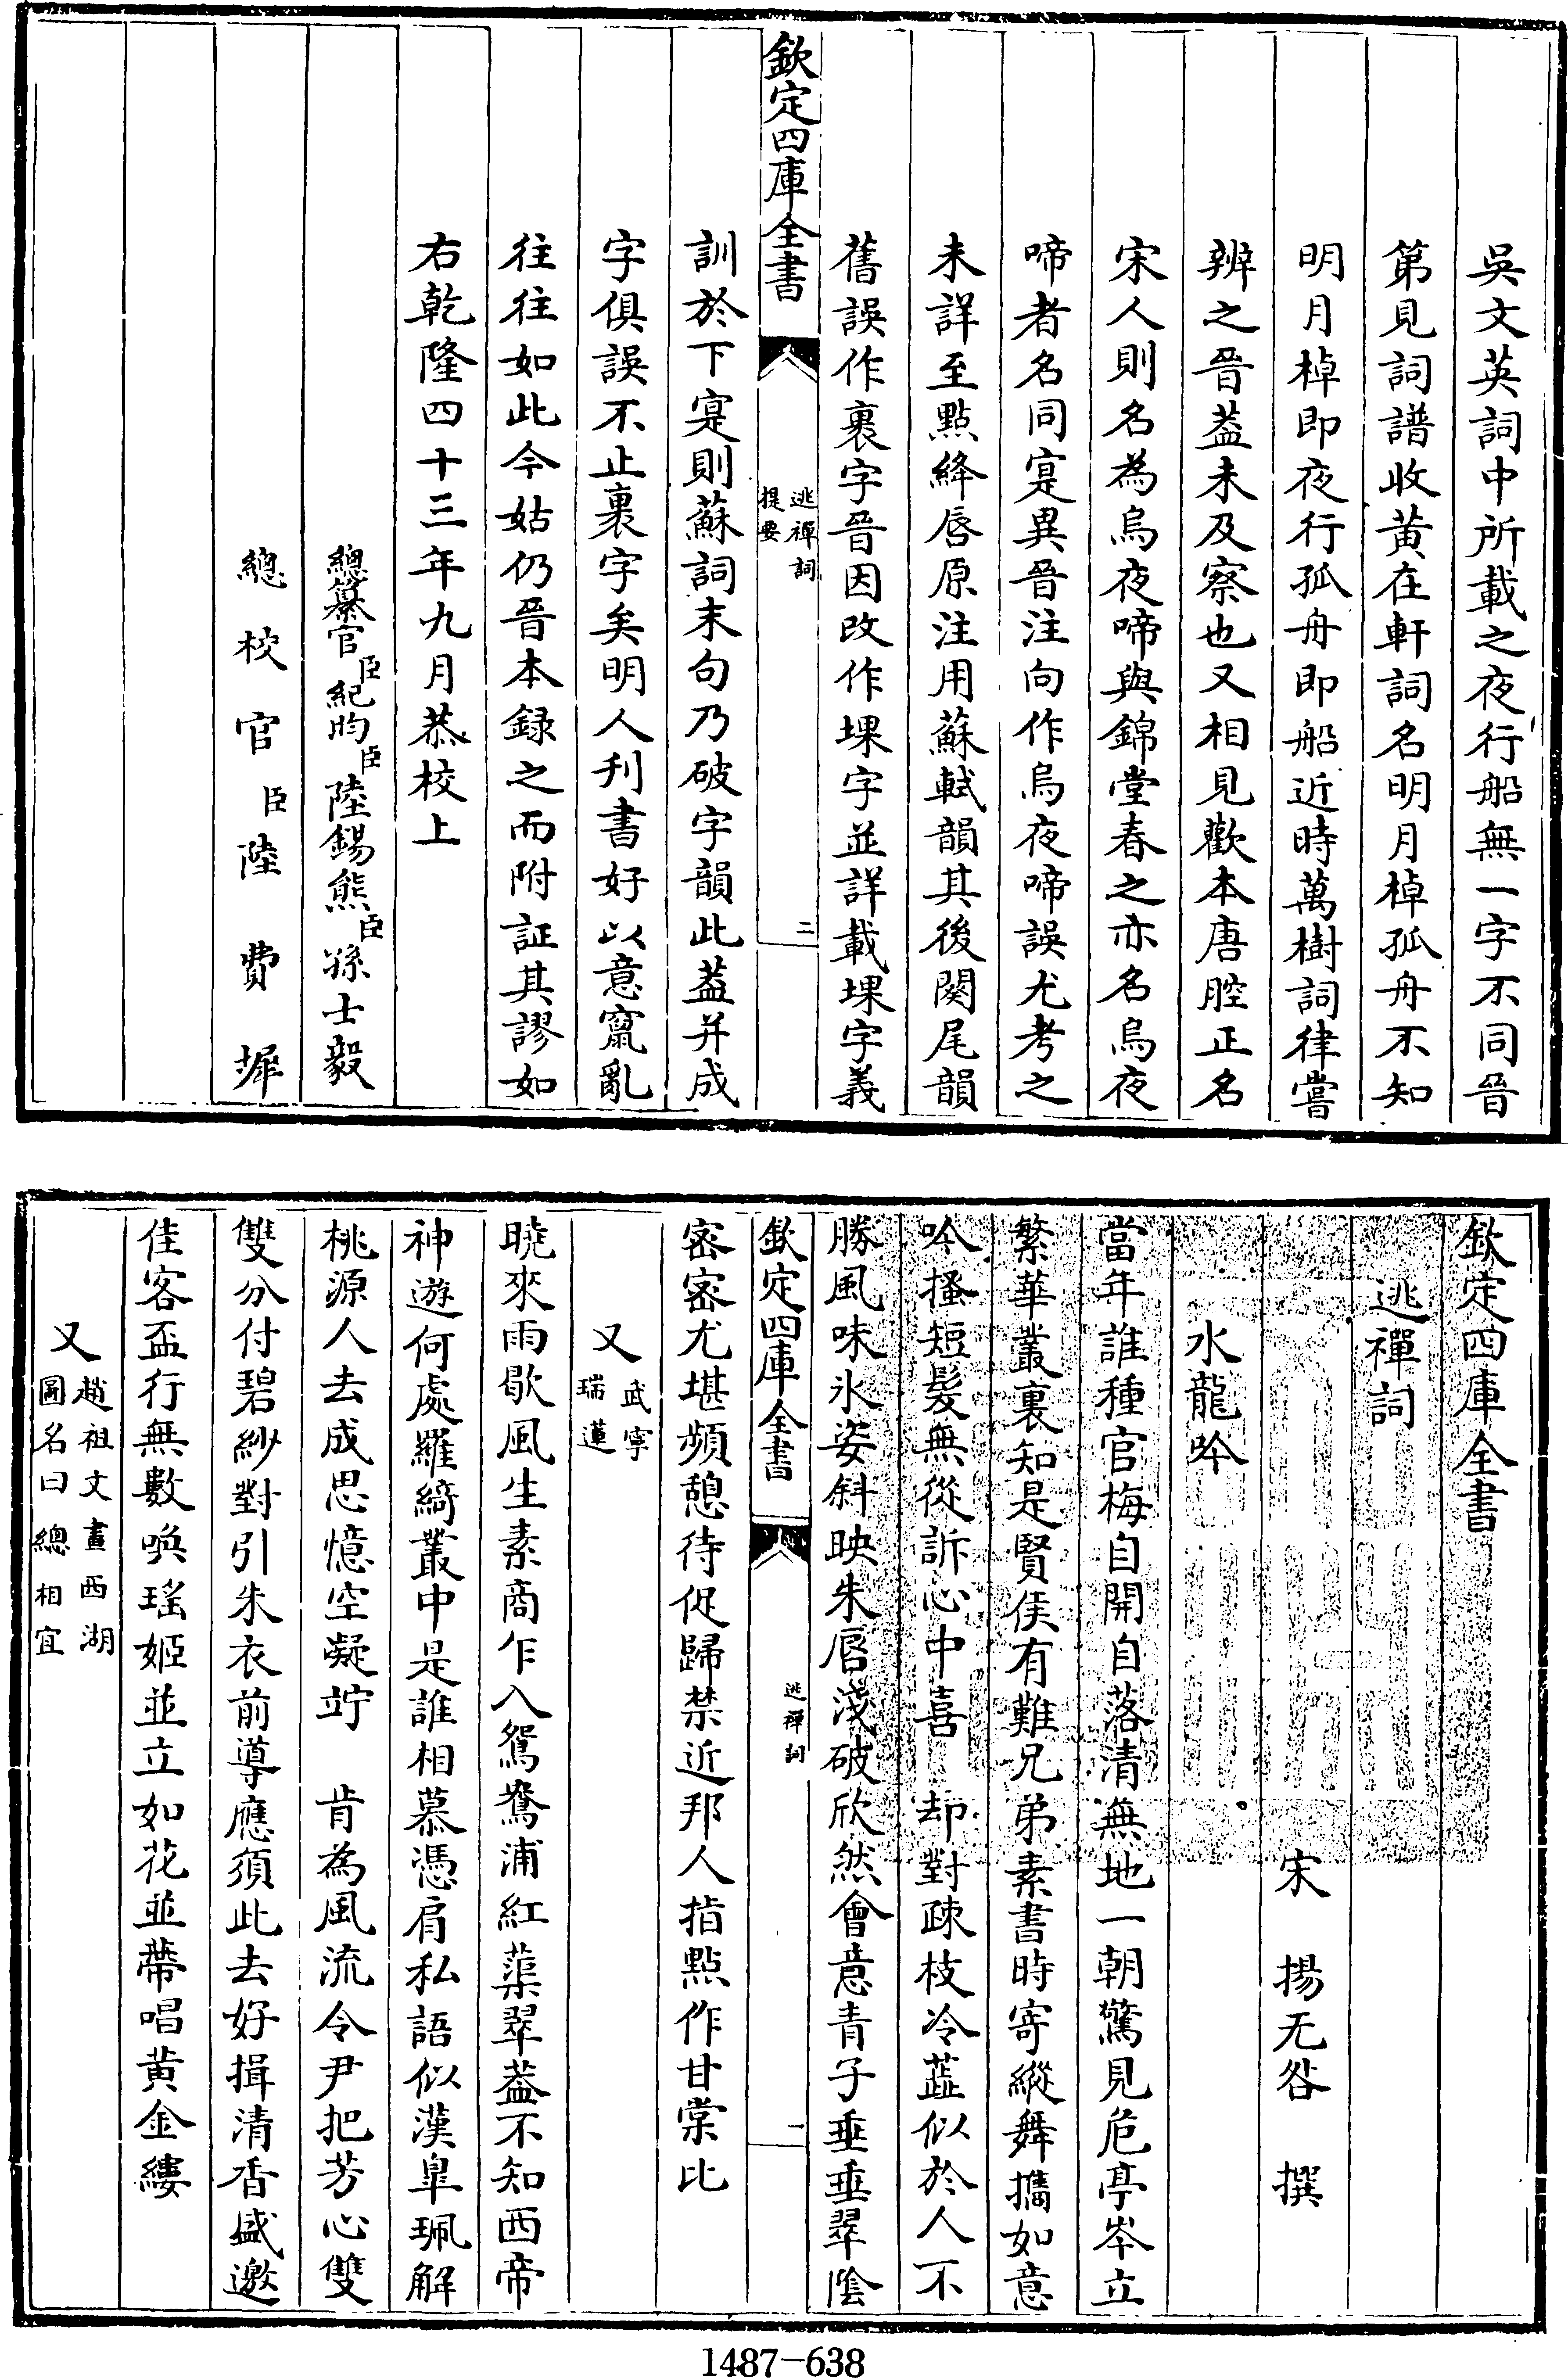 吳文英詞中所載之夜行船無一字不同晉
第見詞譜收黄在軒詞名明月棹孤舟不知
明月棹即夜行孤舟即船近時萬樹詞律嘗
辨之晉葢未及察也又相見歡本唐腔正名
宋人則名為烏夜啼與錦堂春之亦名烏夜
啼者名同寔異晉注向作烏夜啼誤尤考之
未詳至點絳唇原注用蘇軾韻其後闋尾韻
舊誤作裹字晉因改作堁字並詳載堁字義
欽定四庫全書
逃禪詞
提要
二
訓於下寔則蘇詞末句乃破字韻此葢并成
字俱誤不止裹字矣明人刋書好以意竄亂
往往如此今姑仍晉本録之而附証其謬如
右乾隆四十三年九月恭校上
總纂官臣紀昀臣陸錫熊臣孫士毅
總校官臣陸費墀
欽定四庫全書
逃禪詞
宋 揚无咎 撰
水龍吟
當年誰種官梅自開自落清無地一朝驚見危亭岑立
繁華叢裏知是賢侯有難兄弟素書時寄縱舞攜如意
吟搔短髪無從訴心中喜 却對疎枝冷蘂似於人不
勝風味氷姿斜映朱唇淺破欣然會意青子垂垂翠陰
欽定四庫全書
逃禪詞
一
密密尤堪頻憩待促歸禁近邦人指點作甘棠比
又武寧
瑞蓮
曉來雨歇風生素商乍入鴛鴦浦紅蕖翠葢不知西帝
神遊何處羅綺叢中是誰相慕憑肩私語似漢臯珮解
桃源人去成思憶空凝竚 肯為風流令尹把芳心雙
雙分付碧紗對引朱衣前導應須此去好揖清香盛邀
佳客盃行無數喚瑤姬並立如花並蔕唱黄金縷
又趙祖文畫西湖
圖名曰總相宜
1487-638